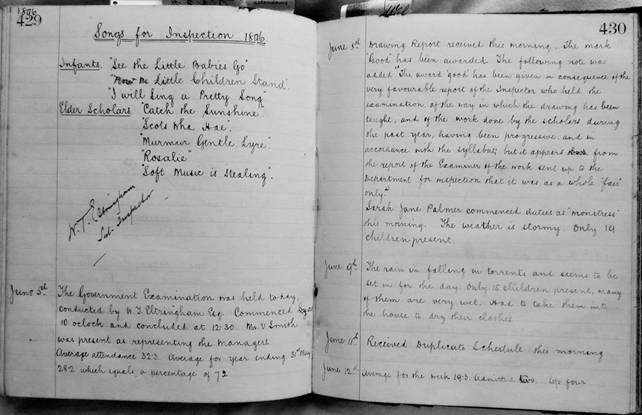 1896
429
Songs for Inspection 1896.
Infants. "See the Little Babies Go"
"Now the Little Children Stand"
"I will Sing a Pretty Song"
Elder Scholars "Catch the Sunshine"
"Scots Wha Hae."
"Murmur Gentle Lyre".
"Rosalie"
"Soft Music is Stealing".
W. T. Eltringham
Sub-Inspector
June 3rd The Government Examination was held to-day
conducted by W. T. Eltringham Esq. Commenced
10 oclock and concluded at 12.30. Mr. V. Smith
was present as representing the Managers
Average attendance 32.3. Average for year ending 31st May
28.2 which equals a percentage of 72
430
June 8th Drawing Report received this morning. The mark
"Good" has been awarded. The following note was
added "The award 'good' has been given in consequence of the
very favourable report of the Inspector who held the
examination, of the way in which the drawing has been
taught, and of the work done by the scholars during
the past year, having been progressive, and in
accordance with the syllabus; but it appears from
the report of the Examiner of the work sent up to the
Department for inspection that it was as a whole "fair"
only."
Sarah Jane Palmer commenced duties as "monitress"
this morning. The weather is stormy. Only 19
children present.
June 9th The rain in falling in torrents and seems to be
set in for the day. Only 15 children present, many
of them are very wet. Had to take them into
the house to dry their clothes
June 11th Received Duplicate Schedule this morning
June 12th Average for the week 19.3. Admitted two. left four